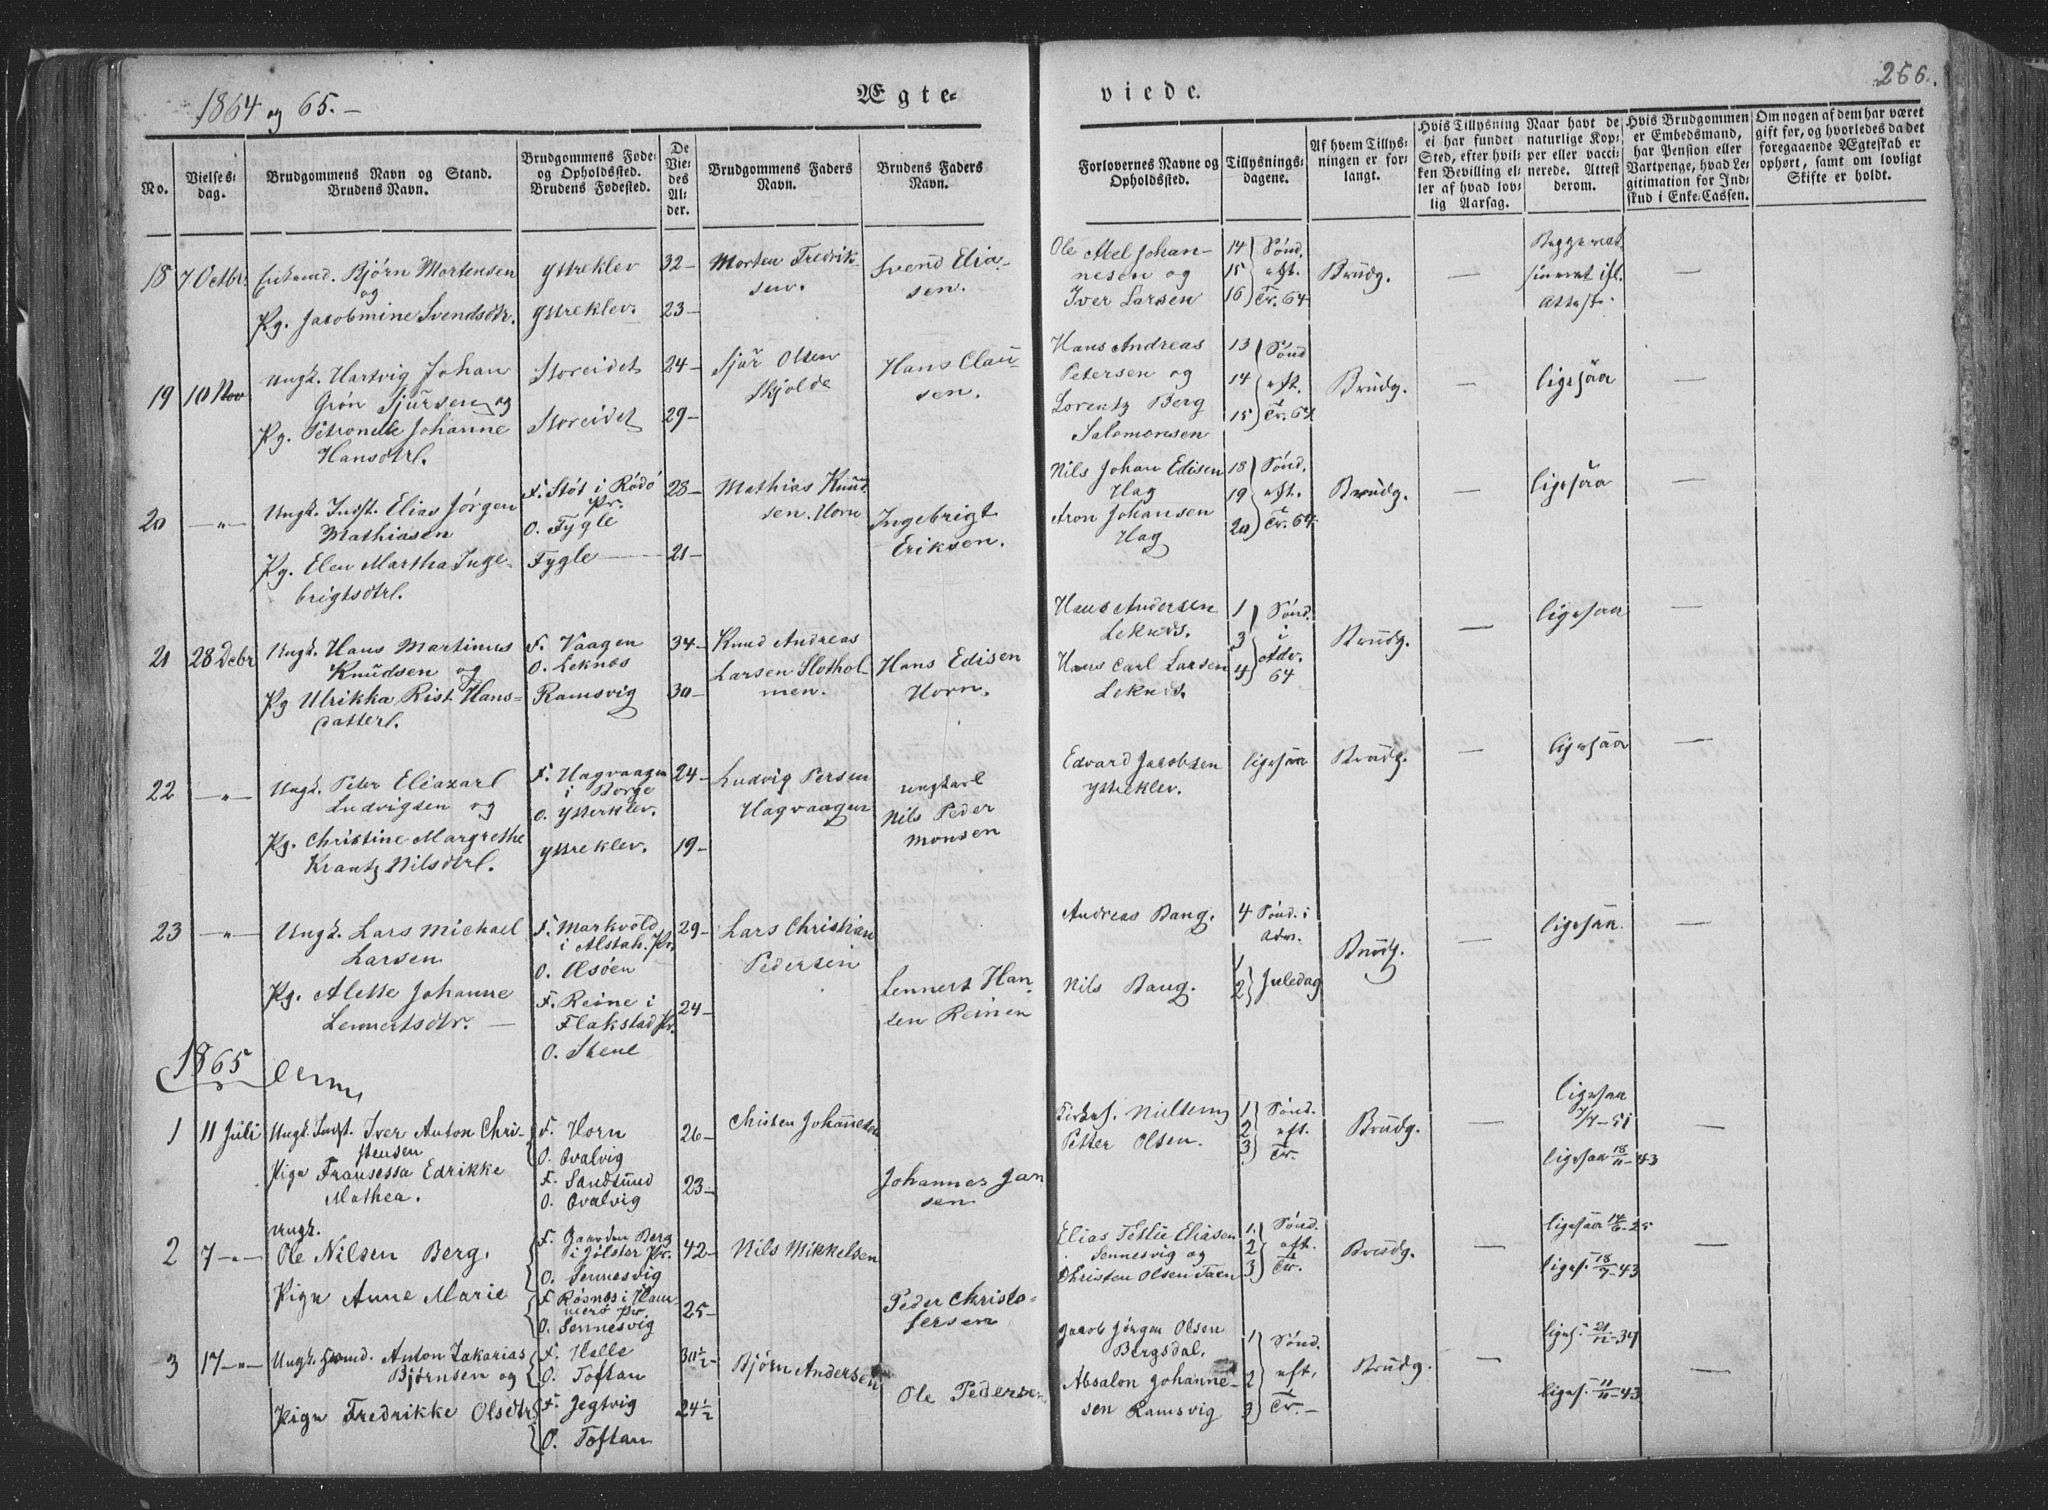 1864 og 65.—
Ægte-
viede.
266.
No.
Vielses-
dag.
Brudgommens Navn og Stand.
Brudens Navn.
Brudgommens Føde-
og Opholdssted.
Brudens Fødested.
De
Vie-
des
Al-
der.
Brudgommens Faders
Navn.
Brudens Faders
Navn.
Forlovernes Navne og
Opholdssted.
Tillysnings-
dagene.
Af hvem Tillys-
ningen er for-
langt.
Hvis Tillysning
ei har fundet
Sted, efter hvil-
ken Bevilling el-
ler af hvad lov-
lig Aarsag.
Naar havt de
naturlige Kop-
per eller vacci-
nerede. Attest
derom.
Hvis Brudgommen
er Embedsmand,
har Pension eller
Vartpenge, hvad Le-
gitimation for Ind-
skud i Enke-Cassen.
Om nogen af dem har været
gift før, og hvorledes da det
foregaaende Ægteskab er
ophørt, samt om lovligt
Skifte er holdt.
18 7 Octbr. Enkemd. Bjørn Mortensen
og
Pg. Jacobmine Svendsdtr.
Ystreklev
Ystreklev.
32—
23—
Morten Fredrik-
sen.
Svend Elia-
sen.
Ole Abel Johan-
nesen og
Iver Larsen
14
15
16
Sønd.
eft.
Tr. 64
Brudg.
—
Begge vac-
sineret ifl.
Attest.
—
19 10 Nov Ungk. Hartvig Johan
Grøn Sjursen og
Pg. Petronelle Johanne
Hansdtrl.
Storeidet
Storeidet
24—
29—
Sjur Olsen
Skjolde
Hans Clau-
sen.
Hans Andreas
Petersen og
Lorentz Berg
Salomonsen
13
14
15
Sønd
eft.
Tr. 64
Brudg.
—
ligesaa
—
20 —"— Ungk. Indst. Elias Jørgen
Mathiasen
Pg. Elen Martha Inge-
brigtsdtrl.
F. Støt i Rødø
Pr.
O. Fygle
Fygle
28—
21—
Mathias Knud-
sen. Horn
Ingebrigt
Eriksen.
Nils Johan Edisen
Hag
Aron Johansen
Hag
18
19
20
Sønd.
eft.
Tr. 64
Brudg.
—
ligesaa
—
21 28 Debr Ungk. Hans Martinus
Knudsen og
Pg Ulrikka Rist. Hans-
datterl.
F. Vaagen
O. Leknæs
Ramsvig
34—
30—
Knud Andreas
Larsen Slothol-
men.
Hans Edisen
Horn.
Hans Andersen
Leknes.
Hans Carl Larsen
Leknes.
1
3
4
Sønd.
i
Adv.
64
Brudg.
—
ligesaa
—
22 —"— Ungk. Peter Eliazarl
Ludvigsen og
Pg. Christine Margrethe
Krantz Nilsdtrl.
F. Hagvaagen
i Borge
O. Ysterklev.
Ystreklev.
24—
19—
Ludvig Persen
Hagvaagen
ungkarl
Nils Peder
Monsen
Edvard Jacobsen
Ystreklev.
ligesaa
Brudg.
—
ligesaa
—
23 —"— Ungk. Lars Michael
Larsen
Pg. Alette Johanne
Lennertsdtr.—
F. Markvold
i Alstah. Pr.
O. Æsøen
F. Reine i
Flakstad Pr.
O. Stene
29—
24—
Lars Christian
Pedersen
Lennert Han-
sen Reinen
Andreas Bang.
Nils Bang.
4 Sønd. i
Adv.
1
2
Juledag
Brudg.
—
ligesaa.
—
1865
1 11 Juli Ungk. Indst. Iver Anton Chri-
stensen
Pige Fransessa Edrikke
Mathea.
F. Horn
O. Qvalvig
F. Sandsund
O. Qvalvig
26—
23—
Christen Johannesen
Johannes Jan
sen
Kirkes. Nielsen og
Petter Olsen.
1
2
3
Sønd.
eft.
Tr.
Brudg.
—
ligesaa
7/7—51
ligesaa 18/11—43
—
2 7 —"— Ungk.
Ole Nilsen Berg.
Pige Anne Marie
F. Gaarden Berg
i Jølster Pr.
O. Sennesvig
F. Røsnæs i Ham-
merø Pr.
O. Sennesvig
42—
25—
Nils Mikkelsen
Peder Christo-
fersen
Elias Tetlie Eliasen
Sennesvig og
Christen Olsen Taen
1.
2
3
Sønd.
eft.
Tr.
Brudg.
—
ligesaa 14/6—25
ligesaa. 18/7—43
—
3 17 —"— Ungk. Gmd. Anton Zakarias
Bjørnsen og
Pige Fredrikke Olsdtr
F. Helle
O. Toftan
F. Jegtvig
O. Toftan
30½—
24½
Bjørn Andersen
Ole Pedersen
Jacob Jørgen Olsen
Bergsdal,
Absalon Johanne-
sen Ramsvig
1
2
3
Sønd.
eft,
Tr.—
Brudg.
—
liges. 21/12—39
liges. 11/11—43
—